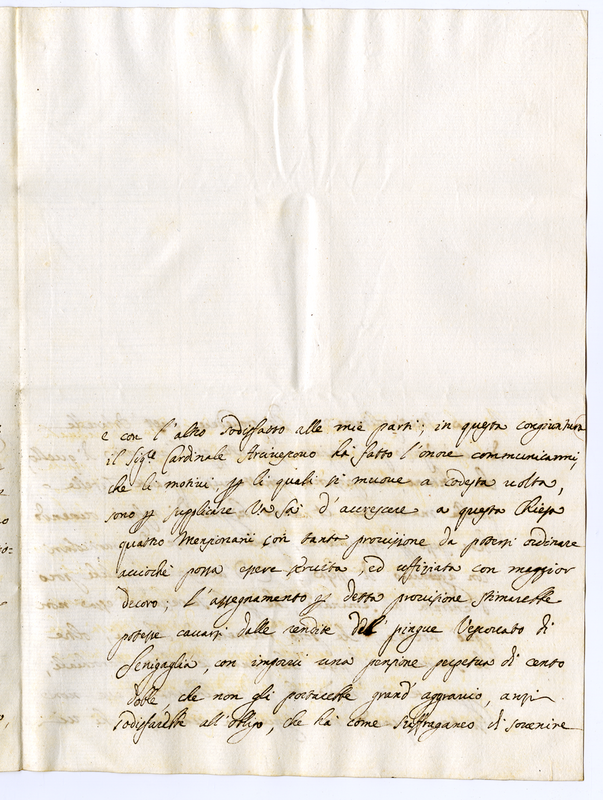 e con l'altro sodisfatto alle mie parti; in questa congiuntura
il Sig.e Cardinale Arcivescovo ha fatto l'onore communicarmi,
che li motivi p li quali si muove a codesta volta,
sono p supplicare Va Sa d'accrescere a questa Chiesa
quattro Mansionarii con tanta provisione da potersi ordinare
acciochè possa essere servita, ed uffiziata con maggior
decoro; L'assegnamento p detta provisione stimarebbe
potesse cavarsi dalle rendite del pingue Vescovato di
Senigaglia, con imporvi una pensione perpetua di cento
doble, che non gli portarebbe grand' aggravio, anzi
sodisfarebbe all'obligo, che hà come suffraganeo di sovenire